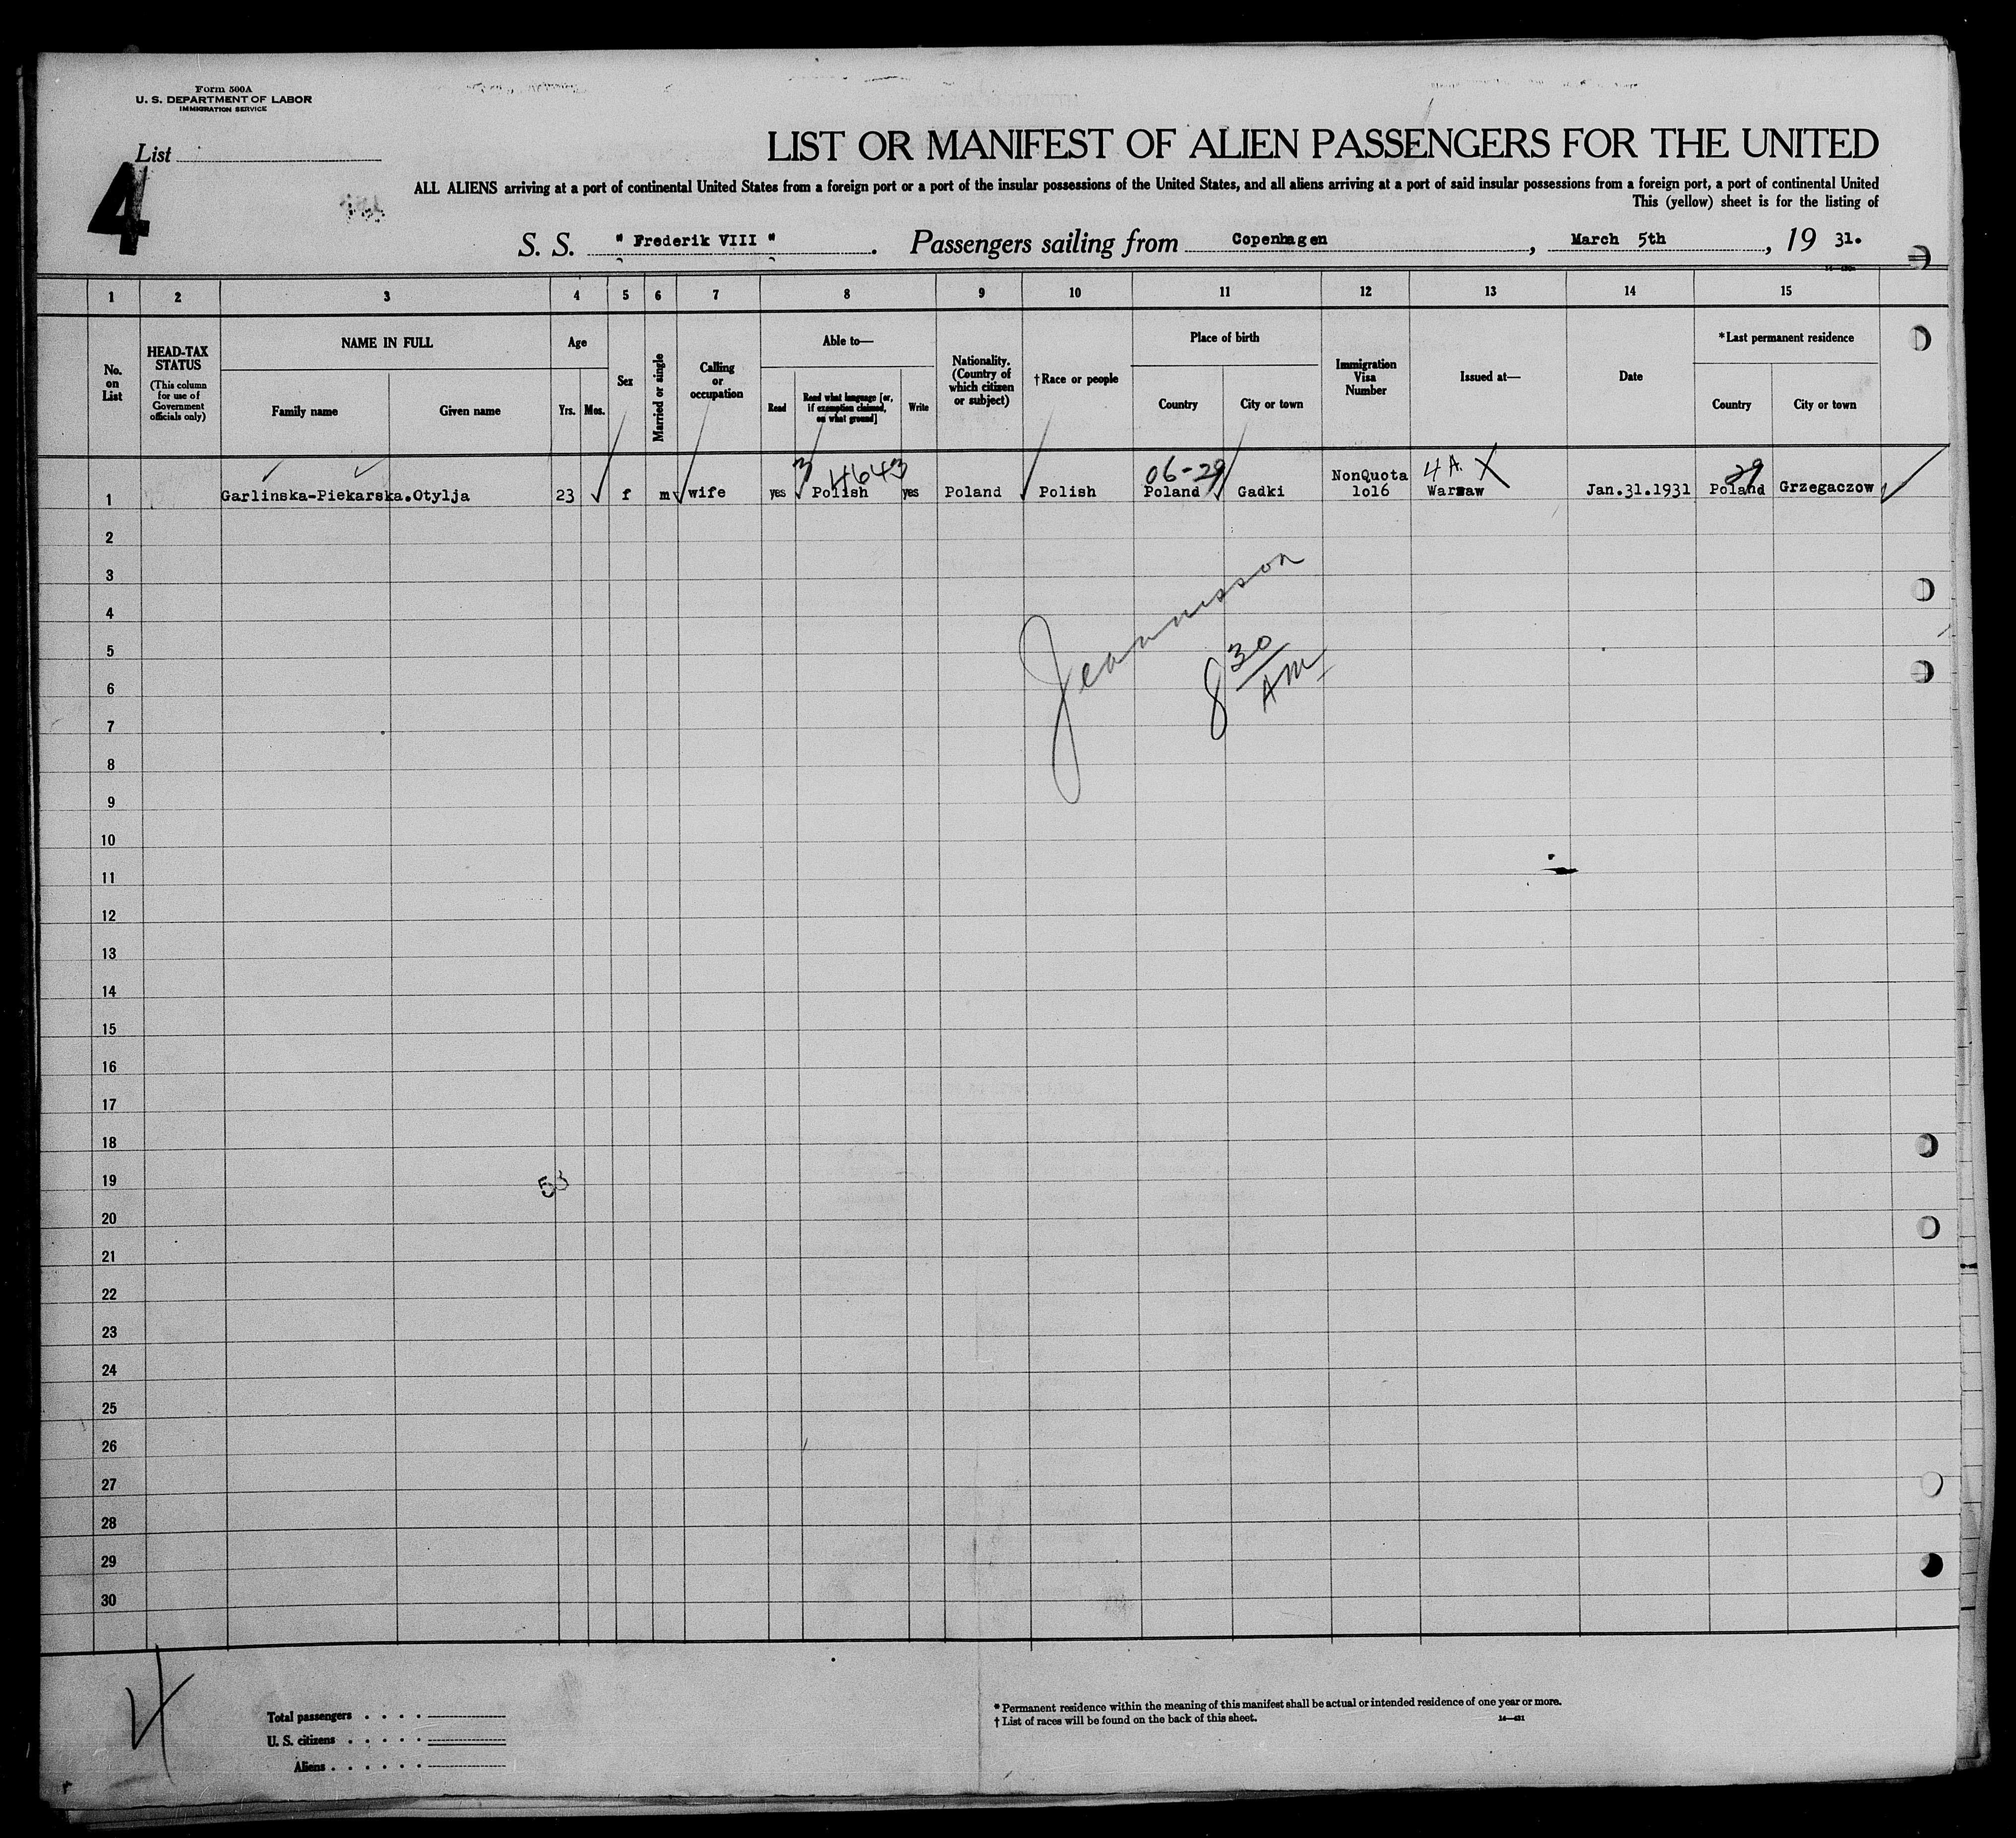 Form 500A
U. S. DEPARTMENT OF LABOR
IMMIGRATION SERVICE
List
4
LIST OR MANIFEST OF ALIEN PASSENGERS FOR THE UNITED
ALL ALIENS arriving at a port of continental United States from a foreign port or a port of the insular possessions of the United States, and all aliens arriving at a port of said insular possessions from a foreign port, a port of continental United
This (yellow) sheet is for the listing of
S. S. " Frederik VIII " . Passengers sailing from Copenhagen , March 5th , 19 31.
1 2 3 4 5 6 7 8 9 10 11 12 13 14 15
No. on List
HEAD-TAX STATUS
(This column for use of Government officials only)
NAME IN FULL
Family name Given name
Age
Yrs. Mos.
Sex
Married or single
Calling or occupation
Able to—
Read
Read what language [or, if exemption claimed, on what ground]
Write
Nationality. (Country of which citizen or subject)
† Race or people
Place of birth
Country City or town
Immigration Visa Number
Issued at—
Date
* Last permanent residence
Country City or town
3 4643 06-29 4 A. X 29
NonQuota
1 Garlinska-Piekarska.Otylja 23 f m wife yes Polish yes Poland Polish Poland Gadki 1o16 Warsaw Jan.31.1931 Poland Grzegaczow
2
3
4
5
6
7
8
9
10
11
12
13
14
15
16
17
18
19
20
21
22
23
24
25
26
27
28
29
30
8 30
AM
4
Total passengers . . . .
U. S. citizens . . . . .
Aliens . . . . . .
* Permanent residence within the meaning of this manifest shall be actual or intended residence of one year or more.
† List of races will be found on the back of this sheet.